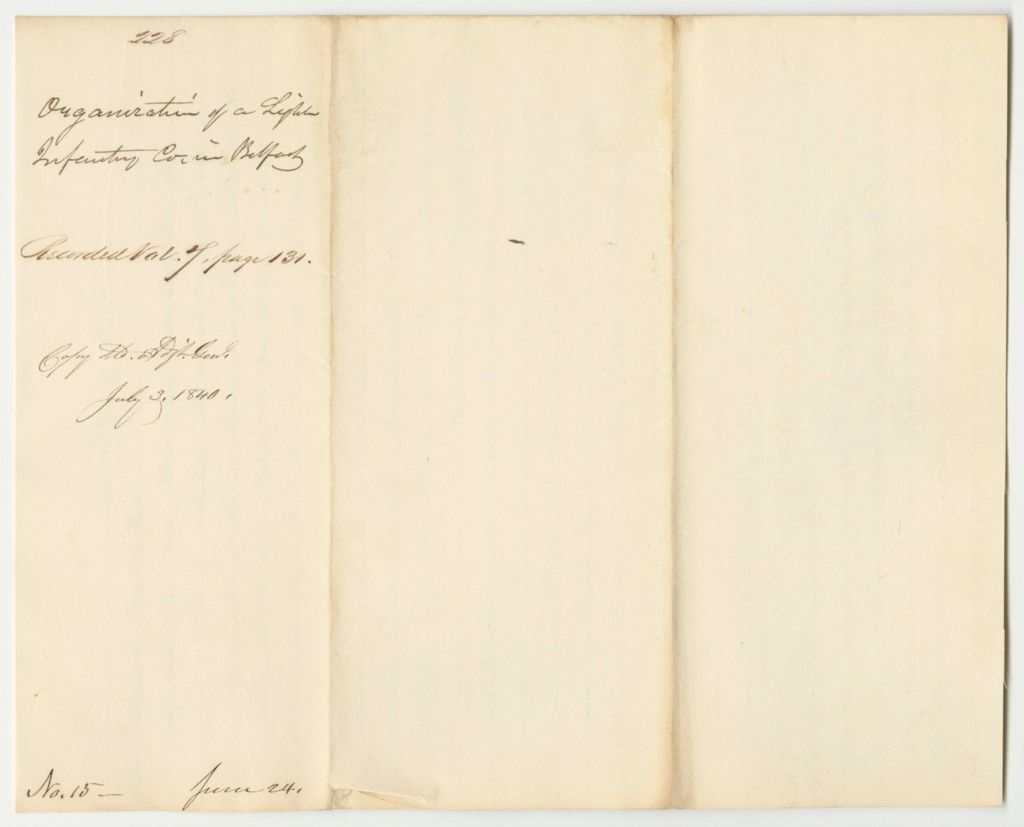 228
Organization of a Light
Infantry Co. in Belfast
Recorded Vol. 7, page 131.
Copy Ad. Adjt. Genl.
July 3, 1840.
No. 15 — June 24.